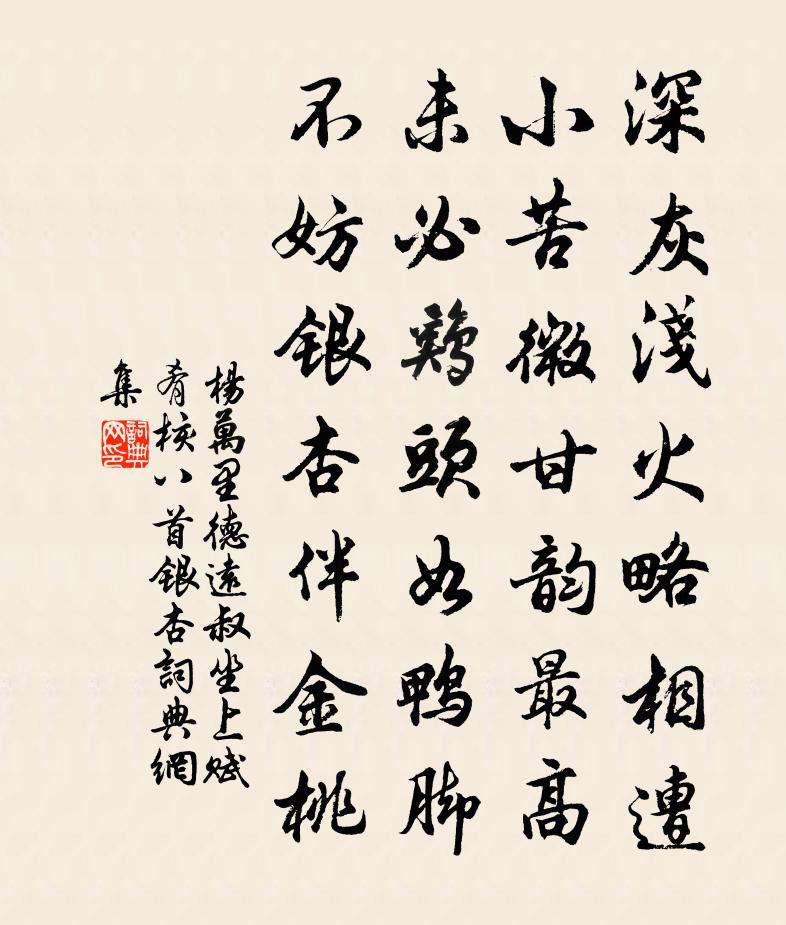 深灰淺火略相遭
小苦微甘韵最高
未必鷄頭如鴨脚
不妨銀杏伴金桃
楊萬里德遠叔坐上賦
肴核八首銀杏詞典網
集
詞典
网印